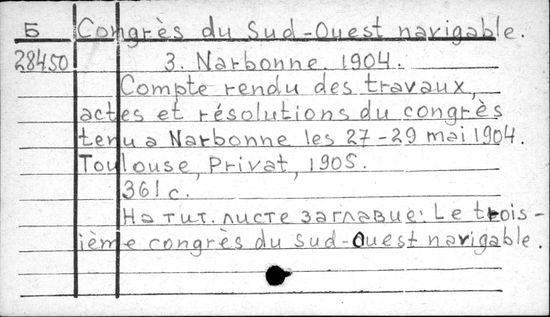 Б Congrès du Sud-Ouest navigable.
28450 3. Narbonne. 1904.
Compte rendu des travaux,
actes et résolutions du congrès
tenu a Narbonne les 27-29 mai 1904.
Toulouse, Privat, 1905.
361 с.
На тит. листе заглавие: Le trois-
ième congrès du Sud-Ouest navigable.